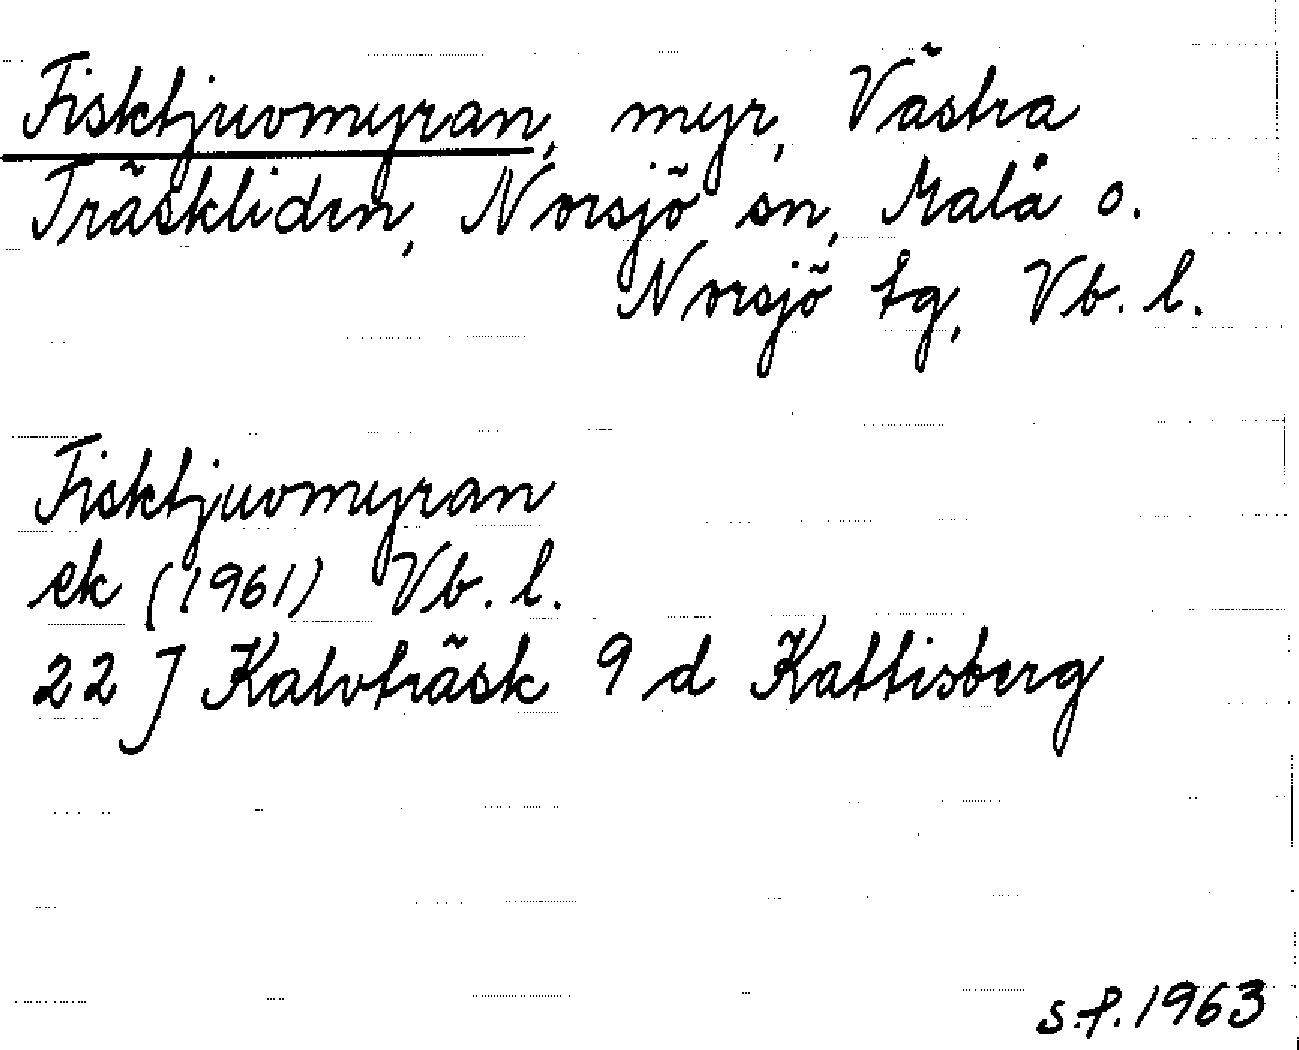 Fisktjuvomyran, myr, Västra
Träskliden, Norsjö sn, Malå o.
Norsjö tg, Vb. l.
Fisktjuvomyran
ek (1961) Vb. l.
22 J Kalvträsk 9 d Kattisberg
s.f. 1963